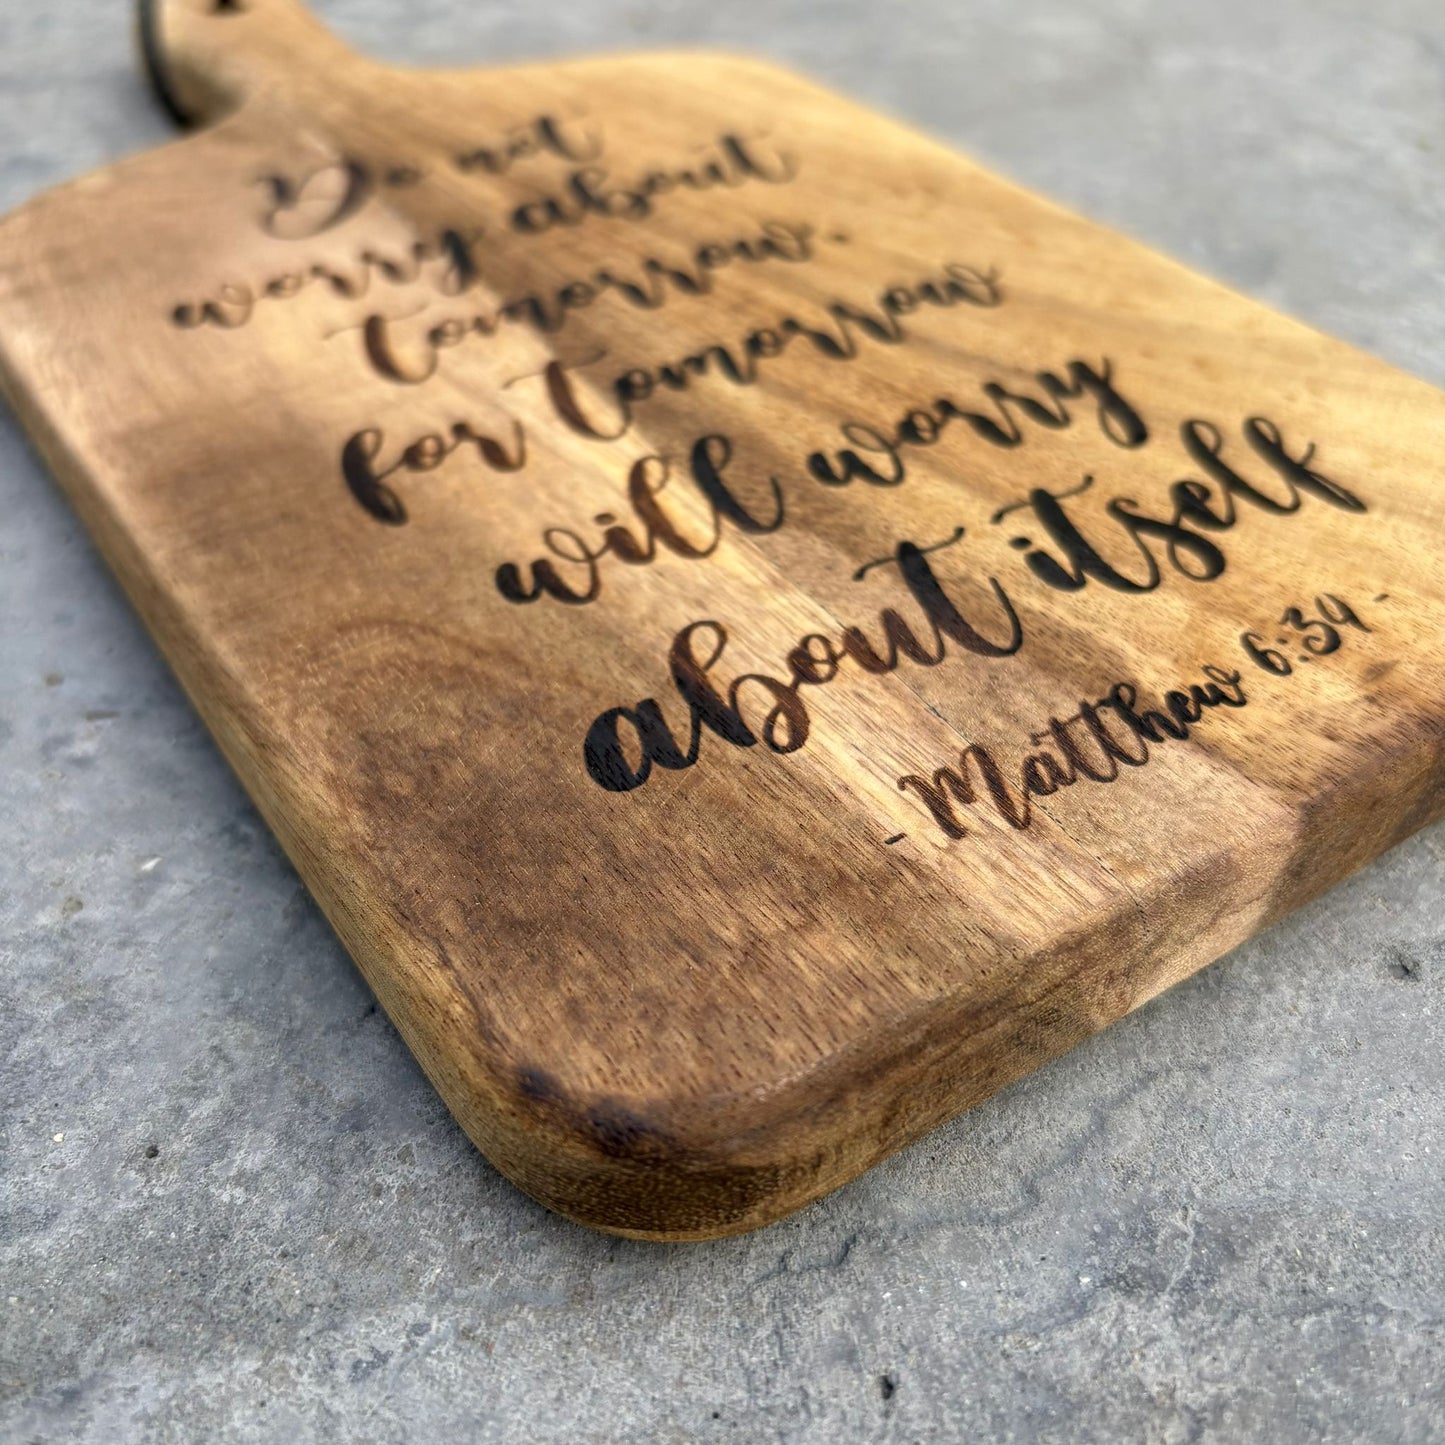 Do not
worry about
tomorrow-
for tomorrow
will worry
about itself
-Matthew 6:34-